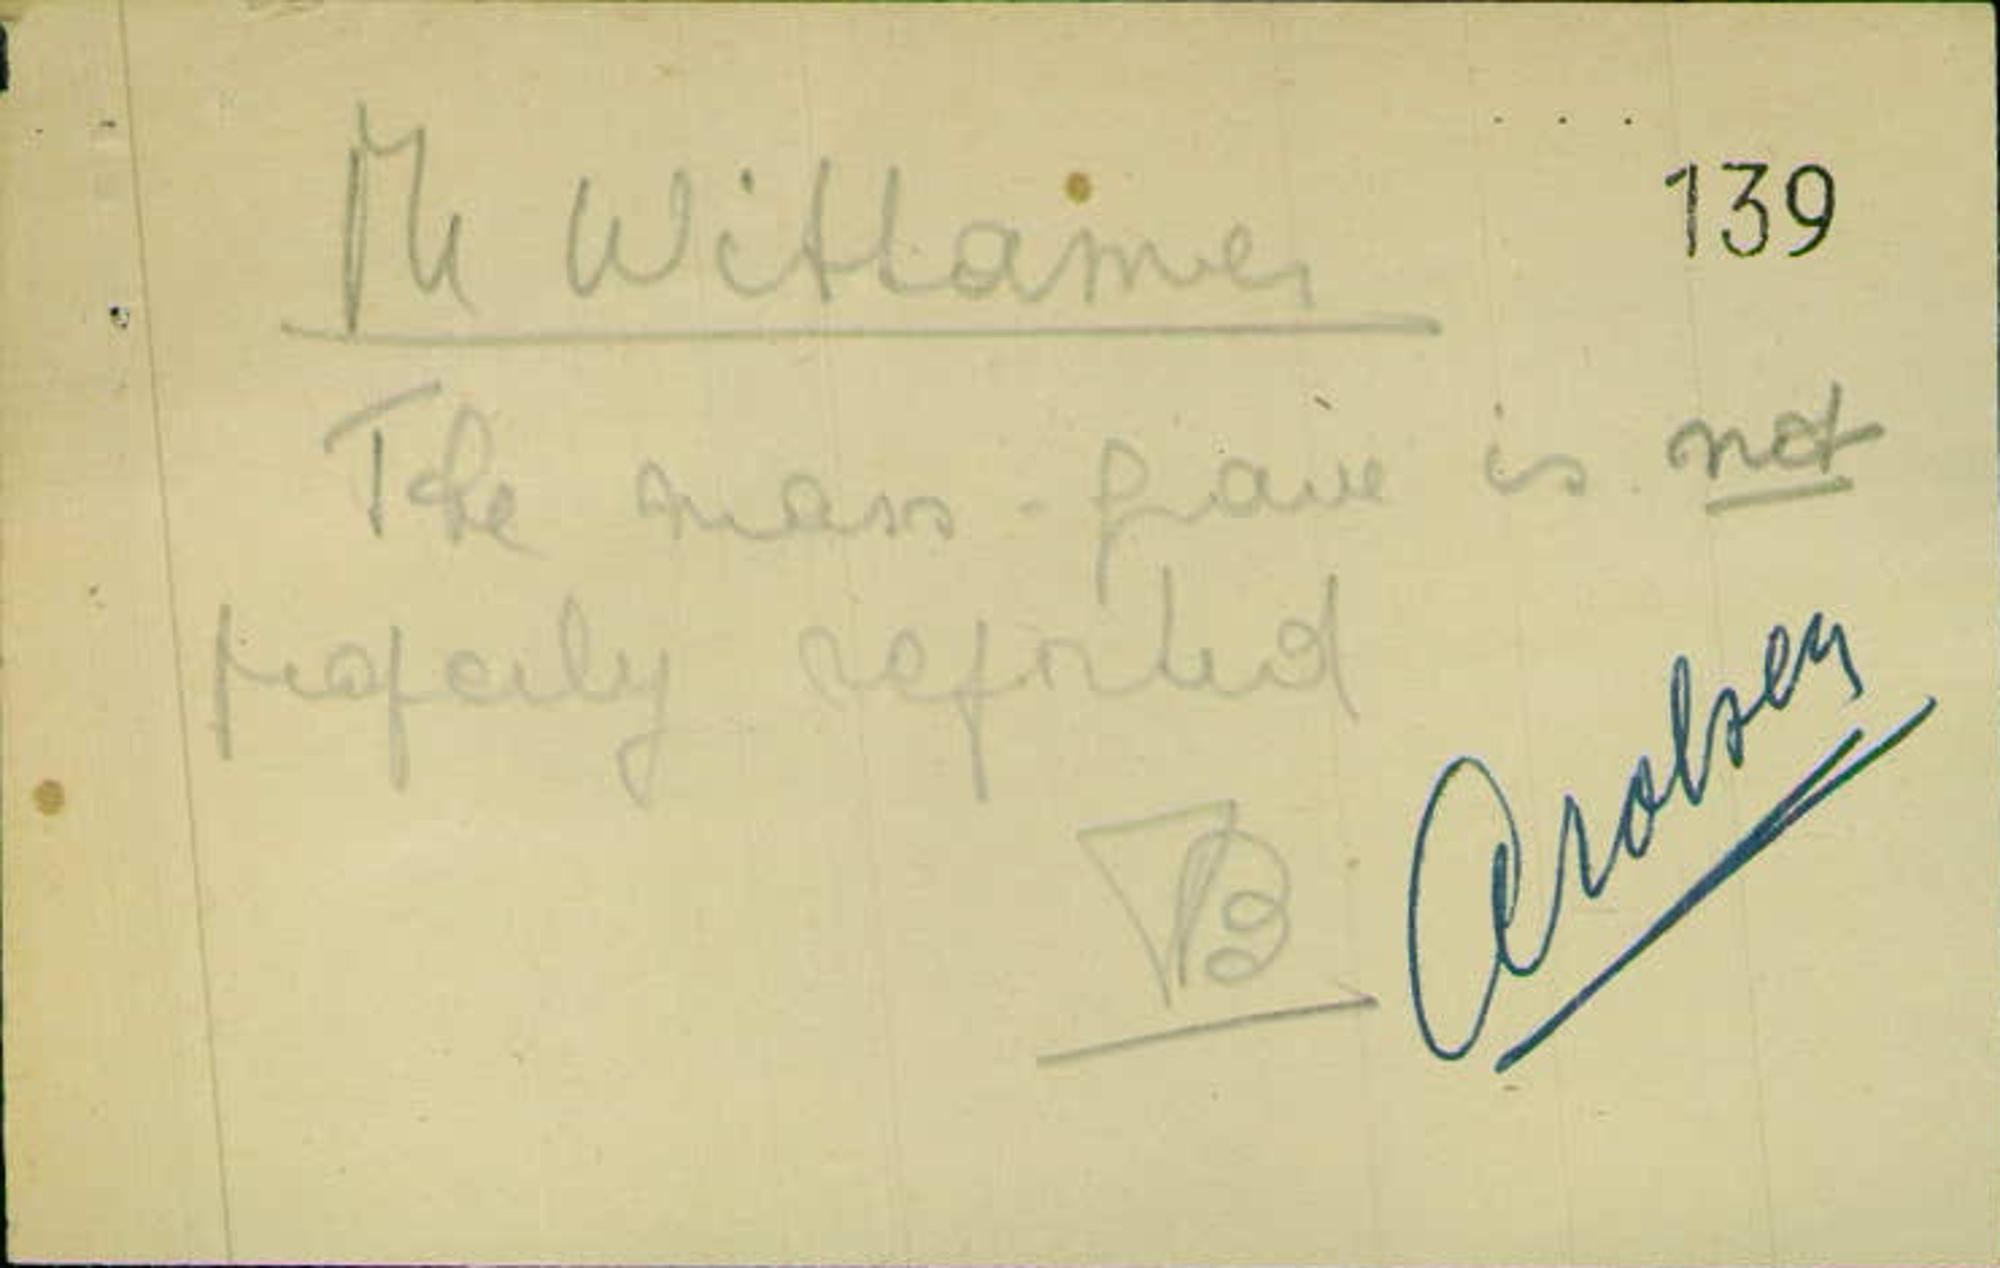 139
Mr Wittamer
The mass-grave is not
properly reported
Arolsen